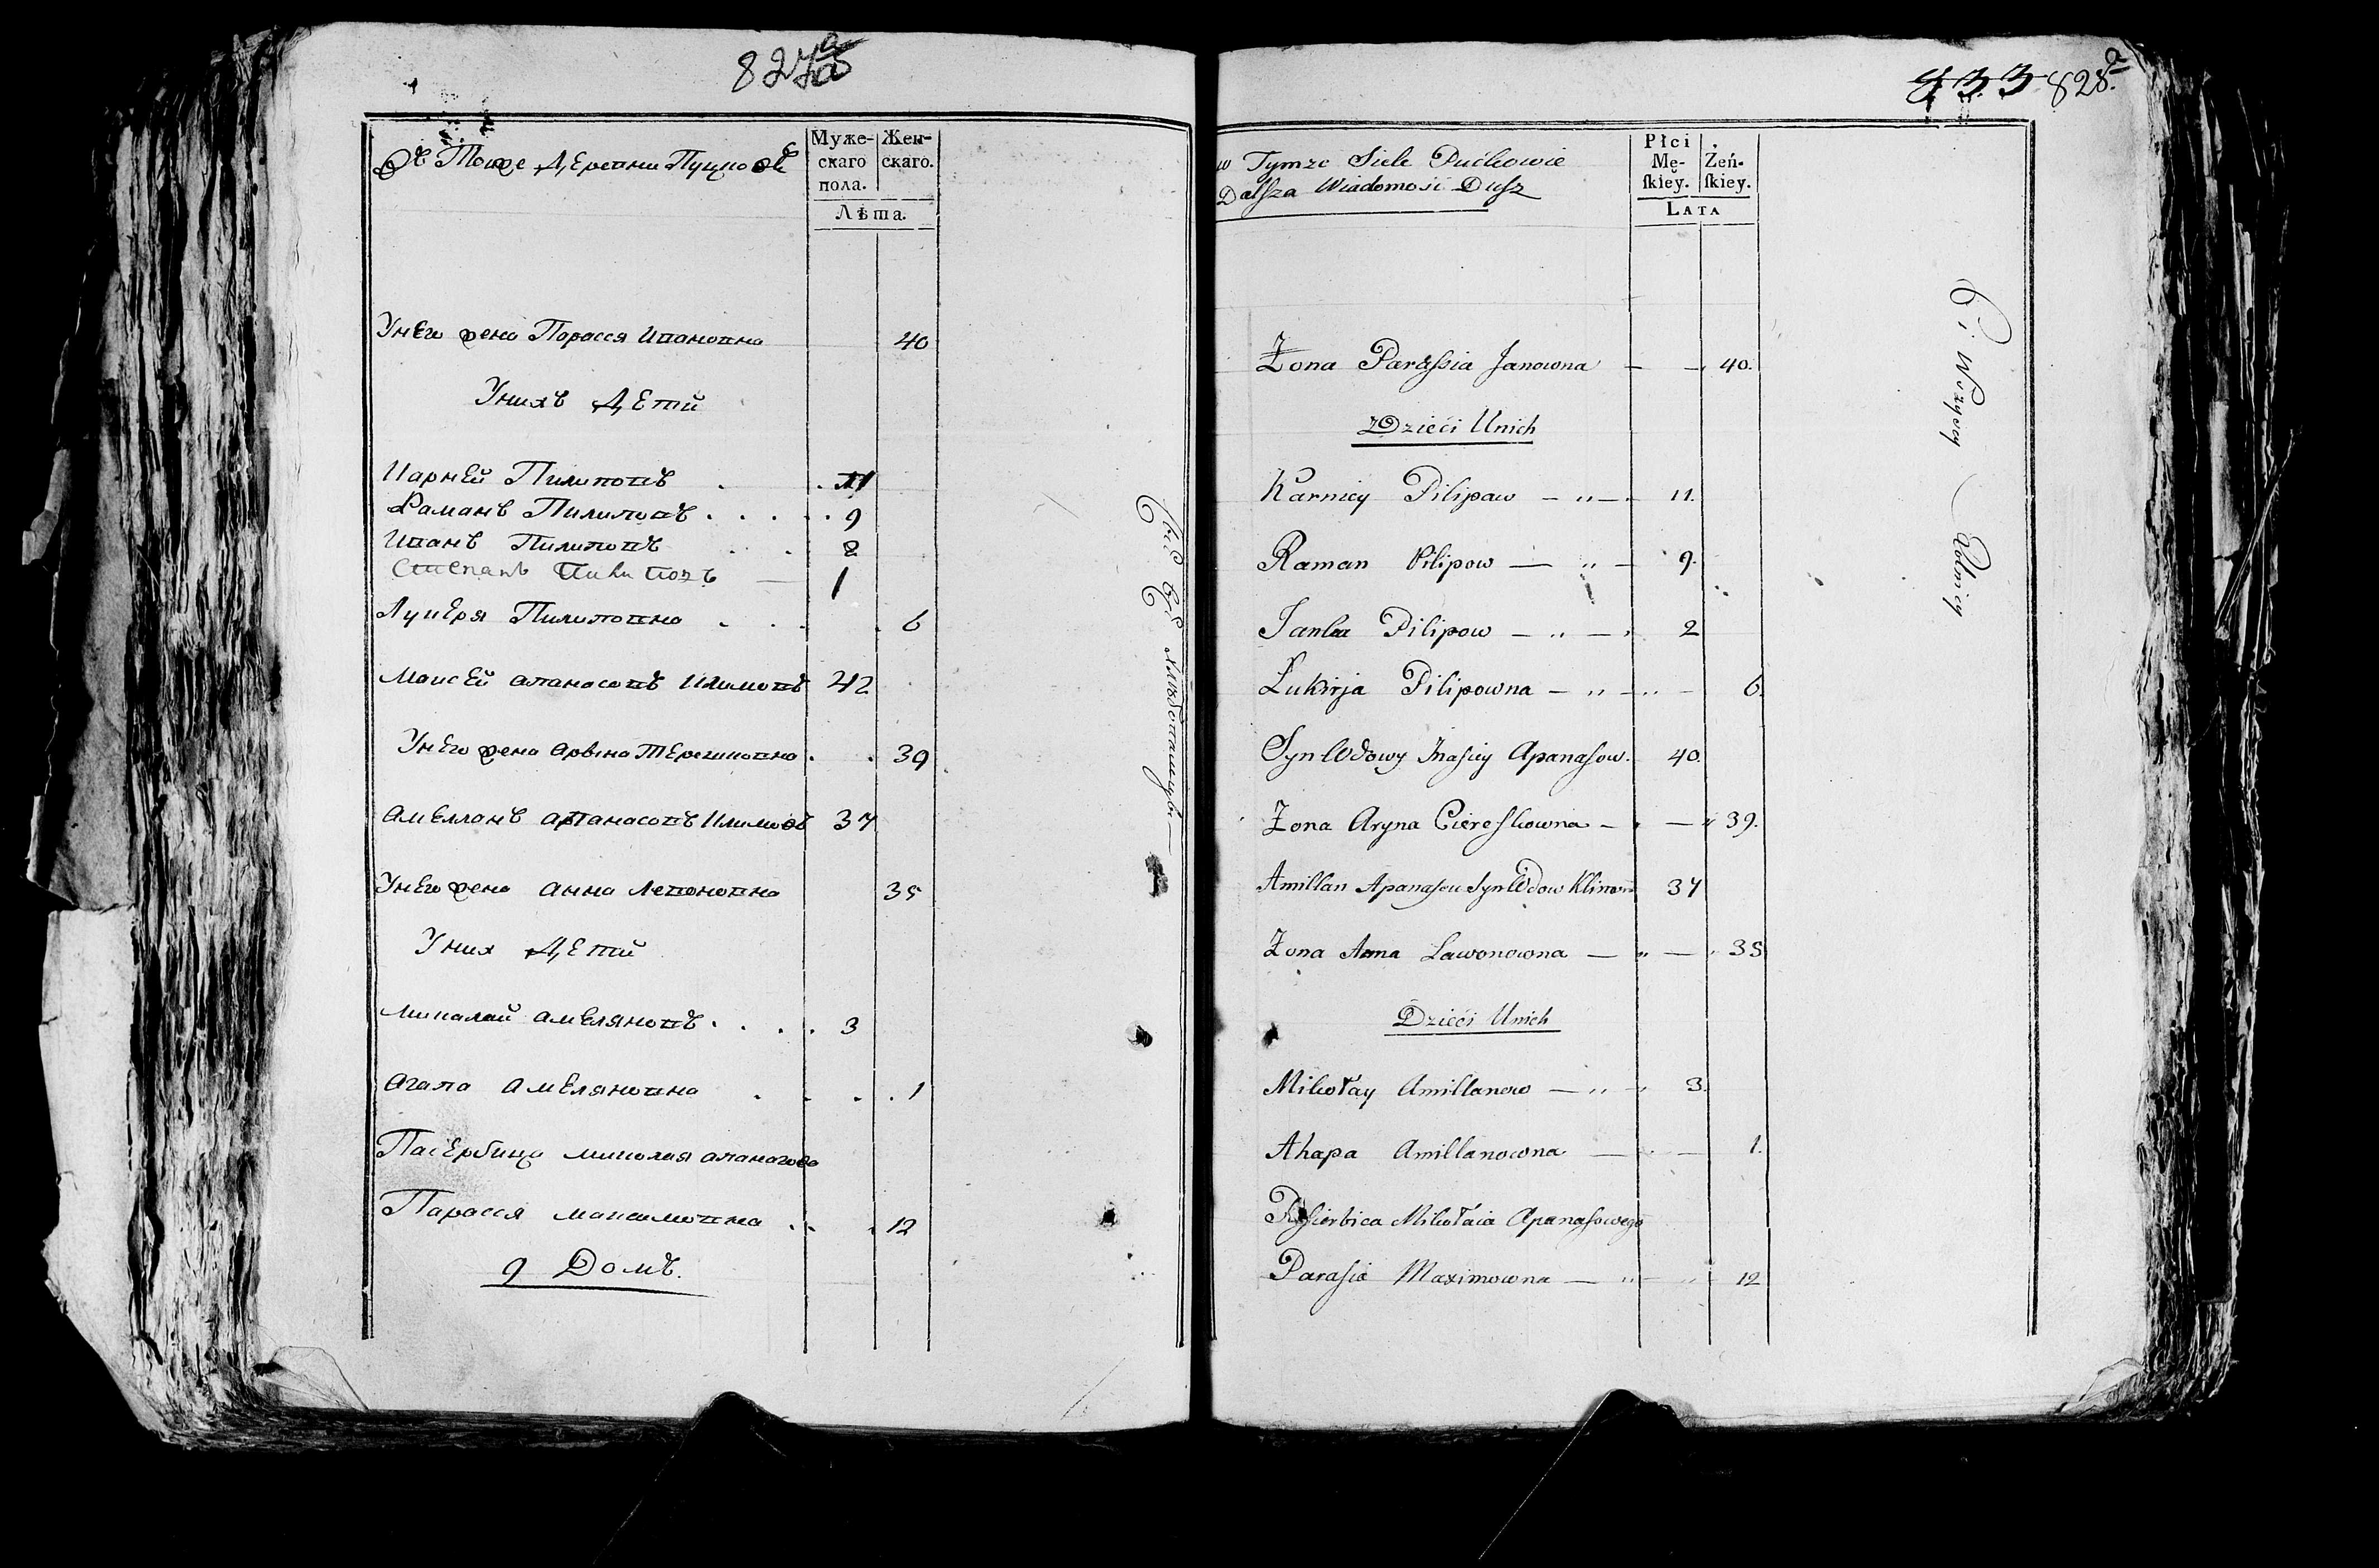 827а
Въ Тойже Деревни Пуцковѣ
Муже-
скаго
пола.
Жен-
скаго.
Лѣта.
Унего жена Парасся Ивановна 40
Унихъ Дети
Карней Пилиповъ . . 11
Раманъ Пилиповъ . . . . . 9
Иванъ Пилиповъ . . 2
Степанъ Пилиповъ — 1
Лукеря Пилиповна . . . . 6
Моисей Апанасовъ Климовъ 42
Унего жена Арына Терешковна . . 39
Амеллонъ Апанасовъ Климовъ 37
Унего жена Анна Левоновна 35
Уних Дети
Миколай Амеляновъ . . . . 3
Агапа Амеляновна . . . . 1
Пасербица Миколая Апанасова
Парасся Максимовна . . . 12
9 Домъ.
433 828.a
w Tymże Siele Puckowie
Dalsza Wiadomość Dusz
Płci
Mę-
skiey.
Żeń-
skiey.
LATA
Żona Parassia Janowna — — 40.
Dzieći Unich
Karniey Pilipaw — " — . 11.
Raman Pilipow — " — 9.
Janka Pilipow — " — . 2
Łukirja Pilipowna — " — " — 6.
Syn Wdowy Apanasow. 40.
Żona Aryna Piereskowna — " — " 39.
Amillan Apanasow Syn Wdow Klimow 37
Żona Anna Lawonowna — " — " 35
Dzieći Unich
Mikołay Amillanow — " — " 3.
Ahapa Amillanowna — " — 1.
Pasierbica Mikołaia Apanasowego
Parasia Maximowna — " — " 12